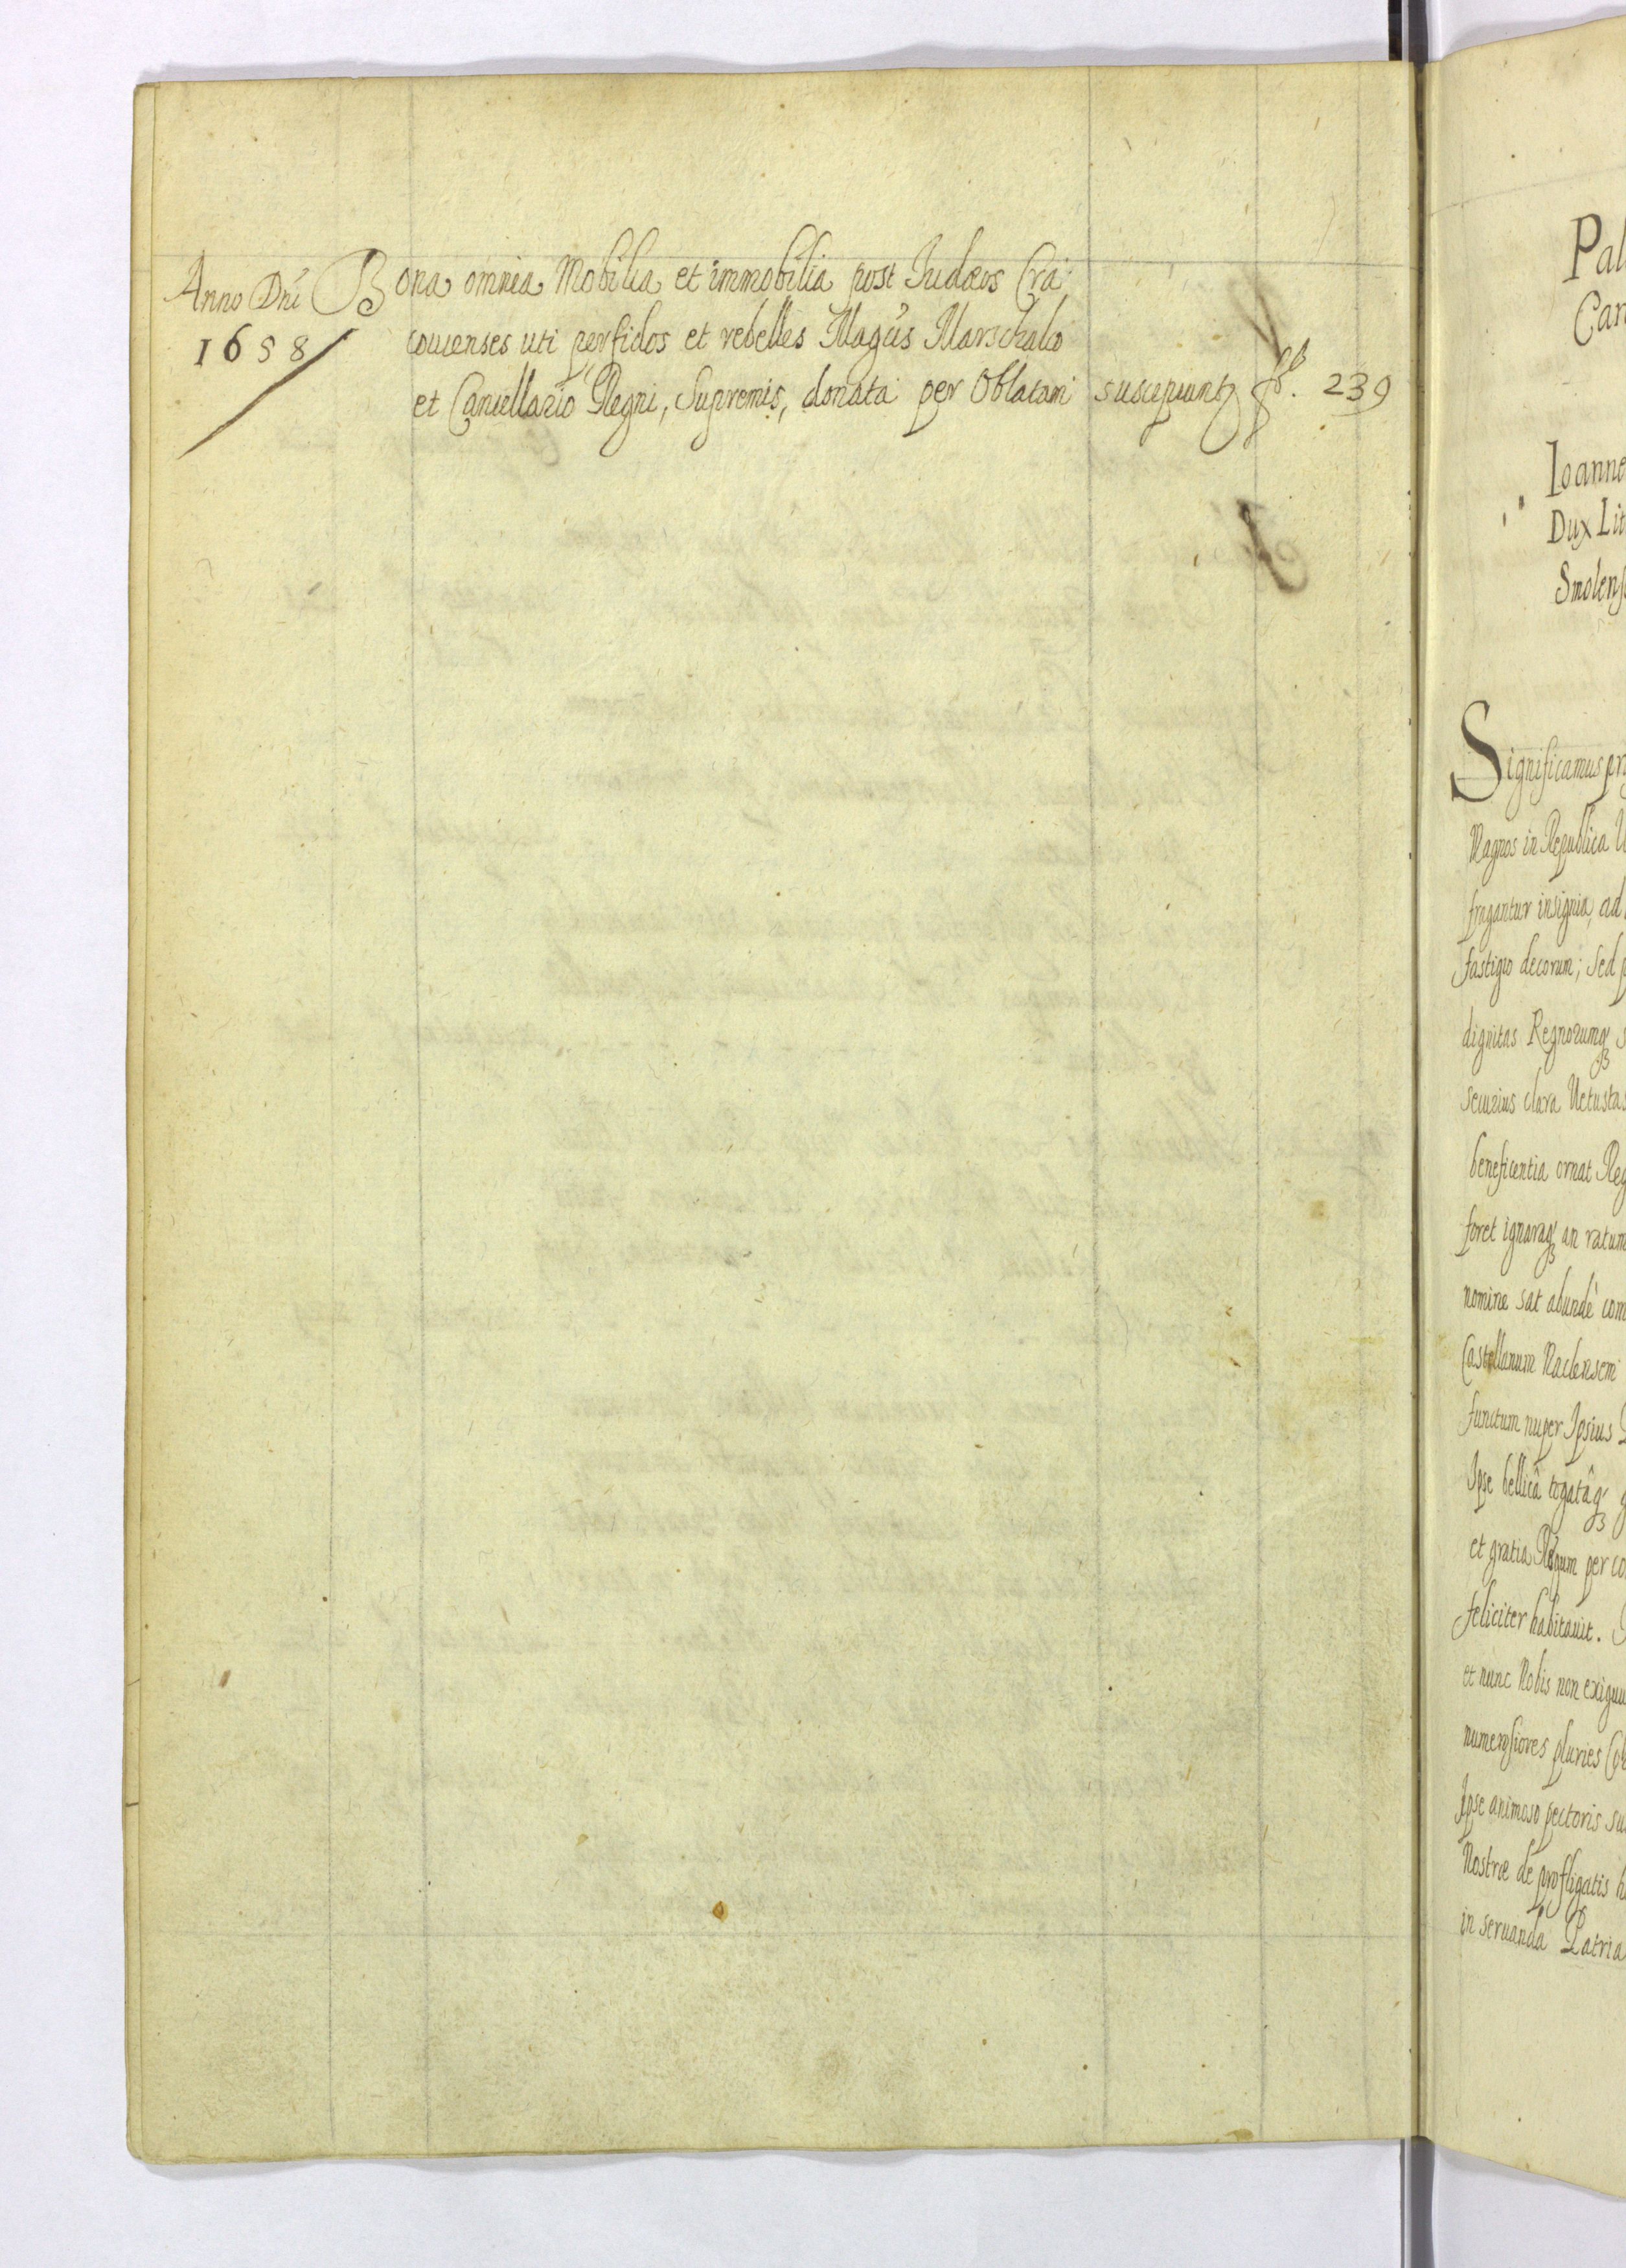 Anno Dni Bona omnia Mobilia et immobilia post Iudæos Cra,
1658 couienses uti perfidos et rebelles Mag̃is Marschalco
et Cancellario Regni, Supremis, donata per Oblatam suscipiunt 239
Pal
Can
Ioanne
Dux Lit
Smolens
Significamus pr
Magnos in Republica
fragantur insignia, ad
fastigio decorum; sed p
dignitas Regnorumq3 s
securius clara Uetustas
beneficentia ornat Reg
foret ignaraq3 an ratum
nomine sat abundè com
Castellanum Naclensem
functum nuper Ipsius
Ipse bellicâ togatâq3 g
et gratia Regum per co
feliciter habitauit.
et nunc Nobis non exiguu
numerosiores pluries
Ipse animoso pectoris su
Nostræ de profligatis h
in seruanda Patria